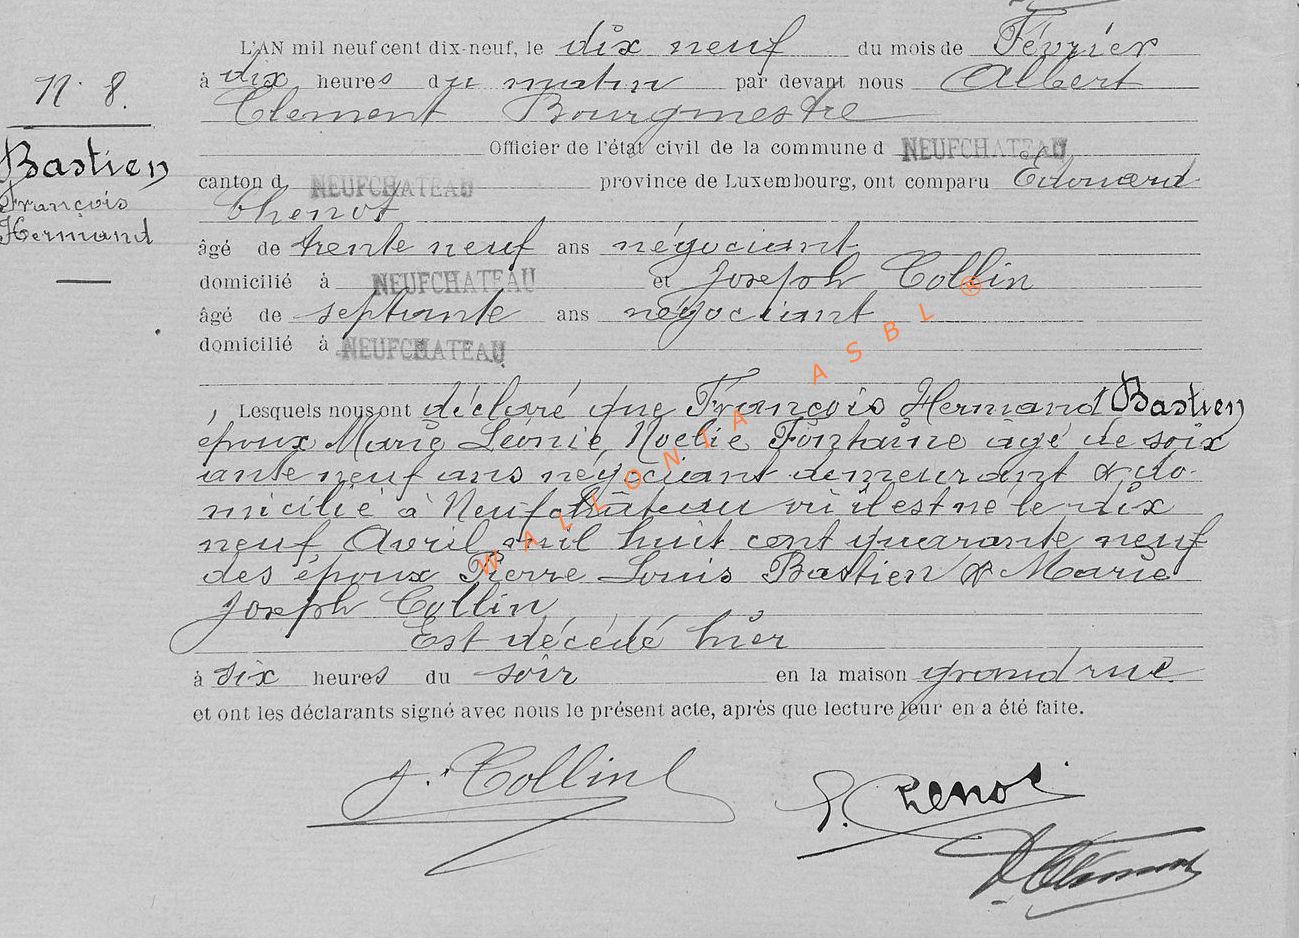 L'AN mil neuf cent dix-neuf, le dix neuf du mois de Février
N. 8.
à dix heures du matin par devant nous Albert
Clement Bourgmestre
Officier de l'état civil de la commune d NEUFCHATEAU
Bastien
François
Hermand
canton d NEUFCHATEAU province de Luxembourg, ont comparu Edouard
Chenot
âgé de trente neuf ans négociant
domicilié à NEUFCHATEAU et Joseph Collin
âgé de septante ans négociant
domicilié à NEUFCHATEAU
Lesquels nous ont déclaré que François Hermand Bastien
époux Marie Léonie, Noelie Fontaine âgé de soix
ante neuf ans négociant demeurant & do-
micilié à Neufchâteau où il est né le dix
neuf Avril mil huit cent quarante neuf
des époux Pierre Louis Bastien & Marie
Joseph Collin
Est décédé hier
à six heures du soir en la maison grand rue
et ont les déclarants signé avec nous le présent acte, après que lecture leur en a été faite.
J. Collin
E. Chenot
A. Clément
WALLONIA ASBL ®